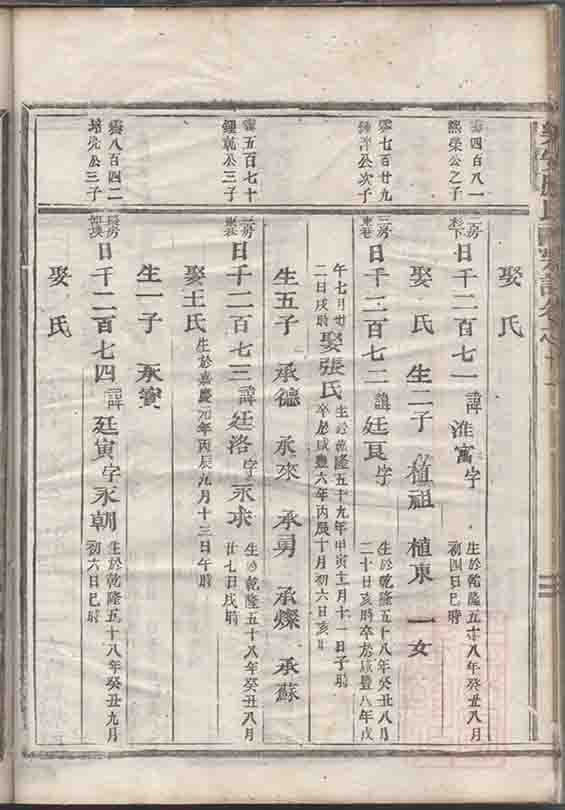 娶氏
四百八一
熙榮公之子
二房
日千二百七一 諱淮寓字
生於乾隆五十八年癸丑八月
初四日巳時
娶 氏 生二子 植祖 植東 一女
七百廿九
公次子
三房
東巷
日千二百七二 諱廷良字
生於乾隆五十八年癸丑八月
二十日亥時卒於咸豐八年戊
午七月廿
二日戌時
娶張氏
生於乾隆五十九年甲寅十一月十一日子時
卒於咸豐六年丙辰十月初六日亥
生五子 承德 承來 承勇 承燦 承蘇
五百七十
鍾 公三子
三房
東巷
日千二百七三 諱廷洛字永求
生於乾隆五十八年癸丑八月
廿七日戌時
娶王氏
生於嘉慶元年丙辰九月十三日午時
生一子 承
八百四二
公三子
長房
日千二百七四 諱廷寅字永朝
生於乾隆五十八年癸丑九月
初六日巳時
娶氏